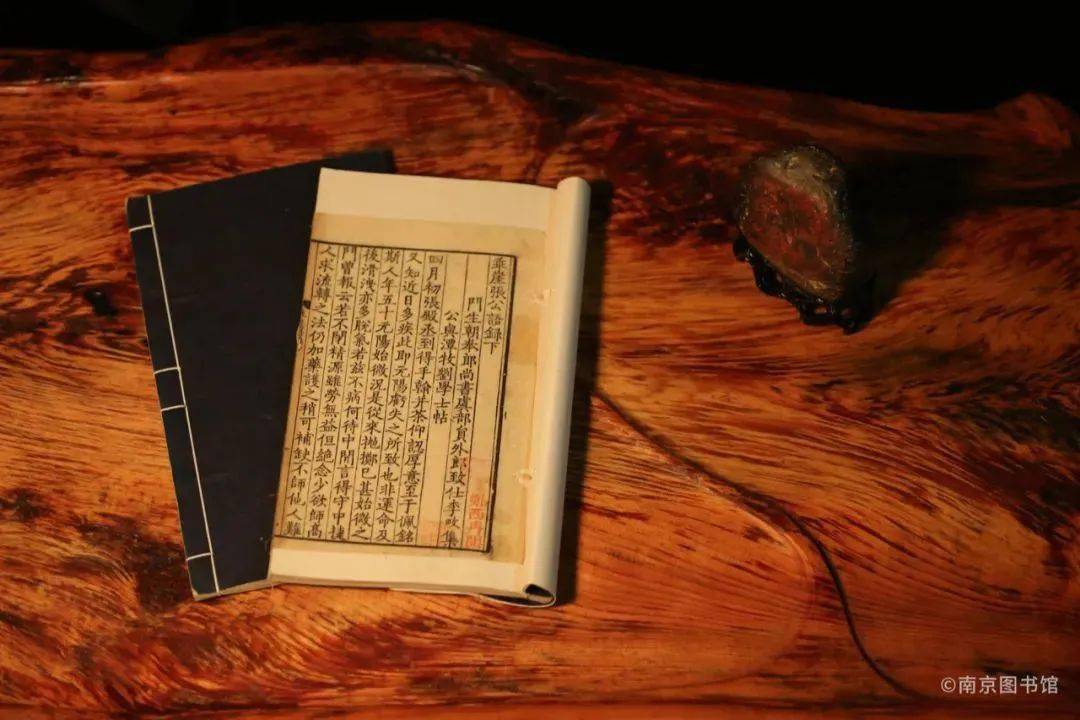 乖崖張公語錄下
門生朝奉郎尚書虞部員外郎致仕李畋集
公與潭牧劉學士帖
四月初張殿丞到得手翰并茶仰認厚意至于佩銘
又知近日多疾此即元陽虧失之所致也非運命及
斯人年五十元陽始微況是從來拋擲已甚始微之
後滑洩亦多脫縈若益不病何待中閒言得守中捷
門實報云若不閉精源雖勞無益但絕念少欲師高
人采流轉之法仍加藥護之稍可補缺不師仙人難
©南京图书馆